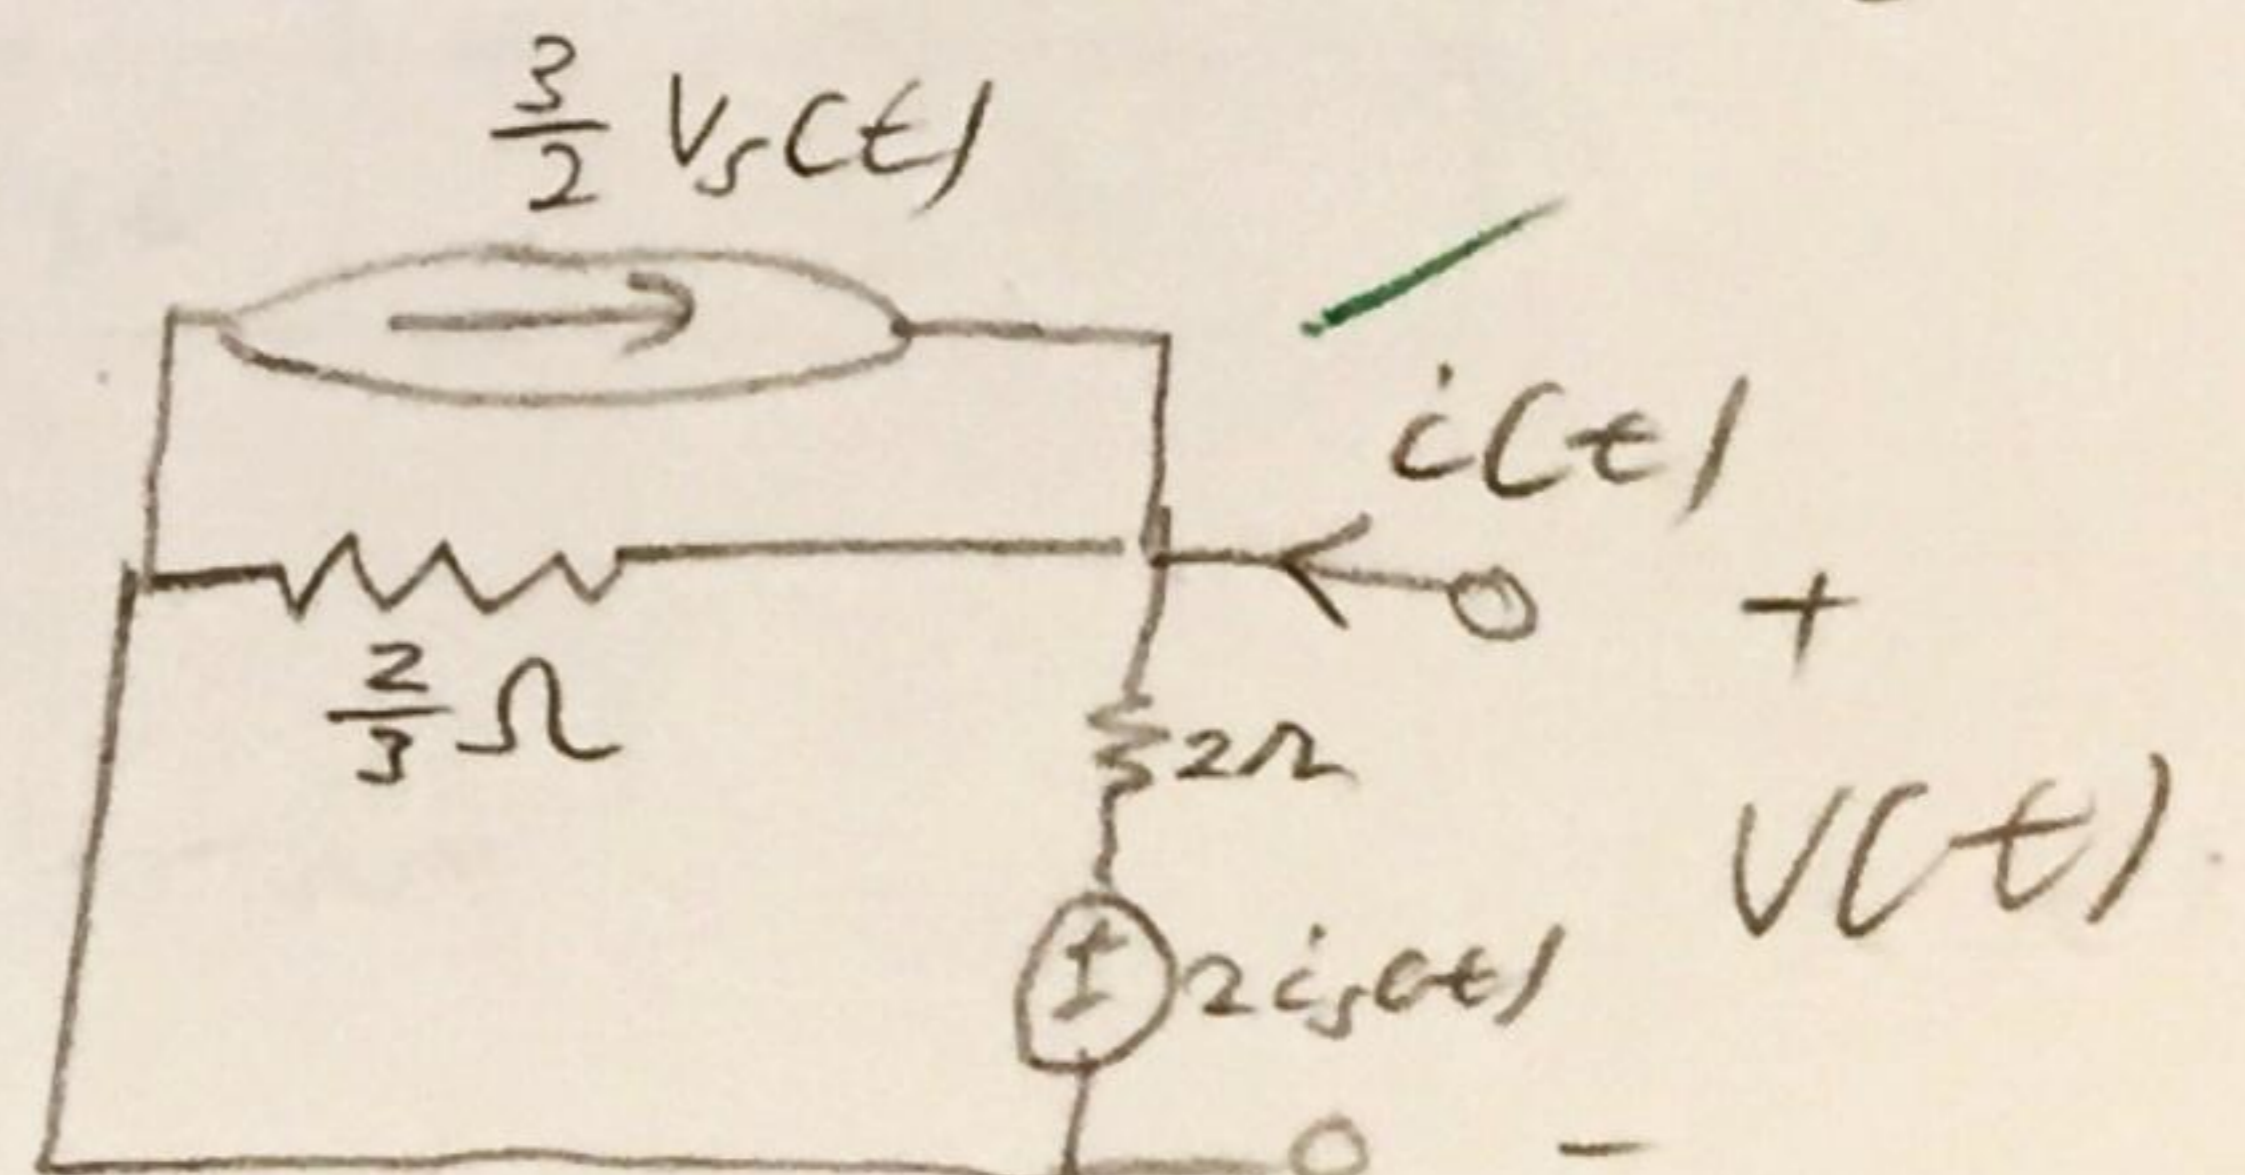 3/2 Vs(t)
i(t)
+
2/3 Ω
2Ω
V(t)
± 2is(t)
-